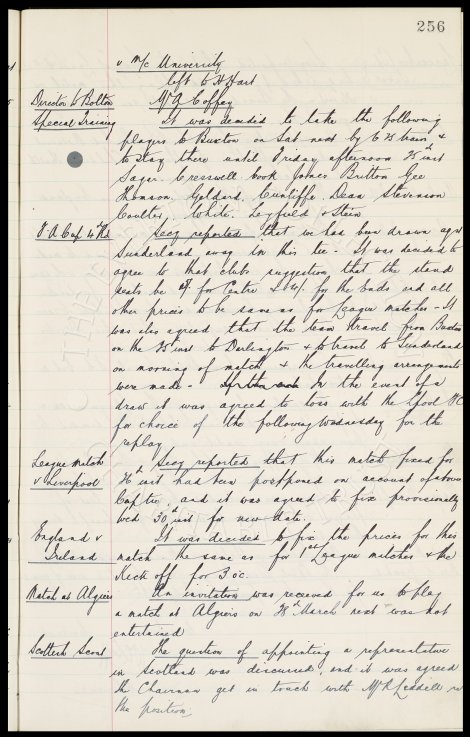 256
v M/c University
left to H Hart
Director to Bolton Mr A Coffey
Special Training It was decided to take the following
players to Buxton on Sat next by 6 25 train &
to stay there until Friday afternoon 25th inst
Sagar. Cresswell Cook Jones Britton Gee
Thomson Geldard. Cunliffe. Dean Stevenson
Coulter, White. Leyfield & Stein
F A Cup 4th Rd Secy reported that we had been drawn agst
Sunderland away in this tie. It was decided to
agree to that clubs suggestion that the stand
seats be for Centre & for the ends and all
other prices to be same as for League matches - It
was also agreed that the team travel from Buxton
on the 25 inst to Darlington & to travel to Sunderland
on morning of match & the travelling arrangements
were made - In the event of a
draw it was agreed to toss with the L'pool FC
for choice of the following Wednesday for the
replay
League Match Secy reported that this match fixed for
v Liverpool 26th inst had been postponed on account of above
Cup tie, and it was agreed to fix provisionally
wed 30th inst for new date.
England v It was decided to fix the prices for this
Ireland match - the same as for 1st League matches & the
Kick off for 3 o'c.
Match at Algiers An invitation was received for us to play
a match at Algiers on 28th March next was not
entertained
Scottish Scout The question of appointing a representative
in Scotland was discussed, and it was agreed
the Chairman get in touch with Mr R Liddell re
the position